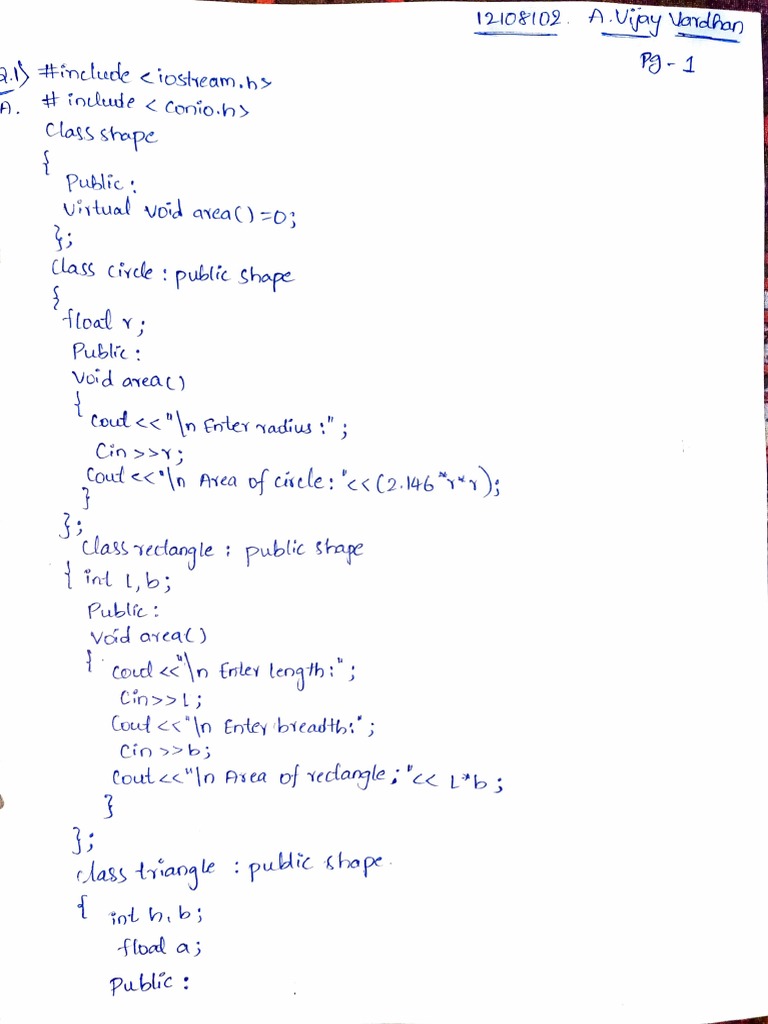 12108102. A.Vijay Vardhan
Pg - 1
2.1) #include <iostream.h>
A. # include < conio.h>
Class shape
{
Public:
Virtual void area()=0;
};
Class circle : public shape
{
float r;
Public:
Void area()
{
Cout <<"\n Enter radius:";
Cin >>r;
Cout <<"\n Area of circle:"<<(2.146*r*r);
}
};
Class rectangle : public shape
{ int l,b;
Public:
Void area()
{ cout <<"\n Enter length:";
Cin>>l;
Cout <<"\n Enter breadth:";
Cin >>b;
Cout<<"\n Area of rectangle;"<< L*b;
}
};
class triangle : public shape.
{ int h,b;
float a;
Public: